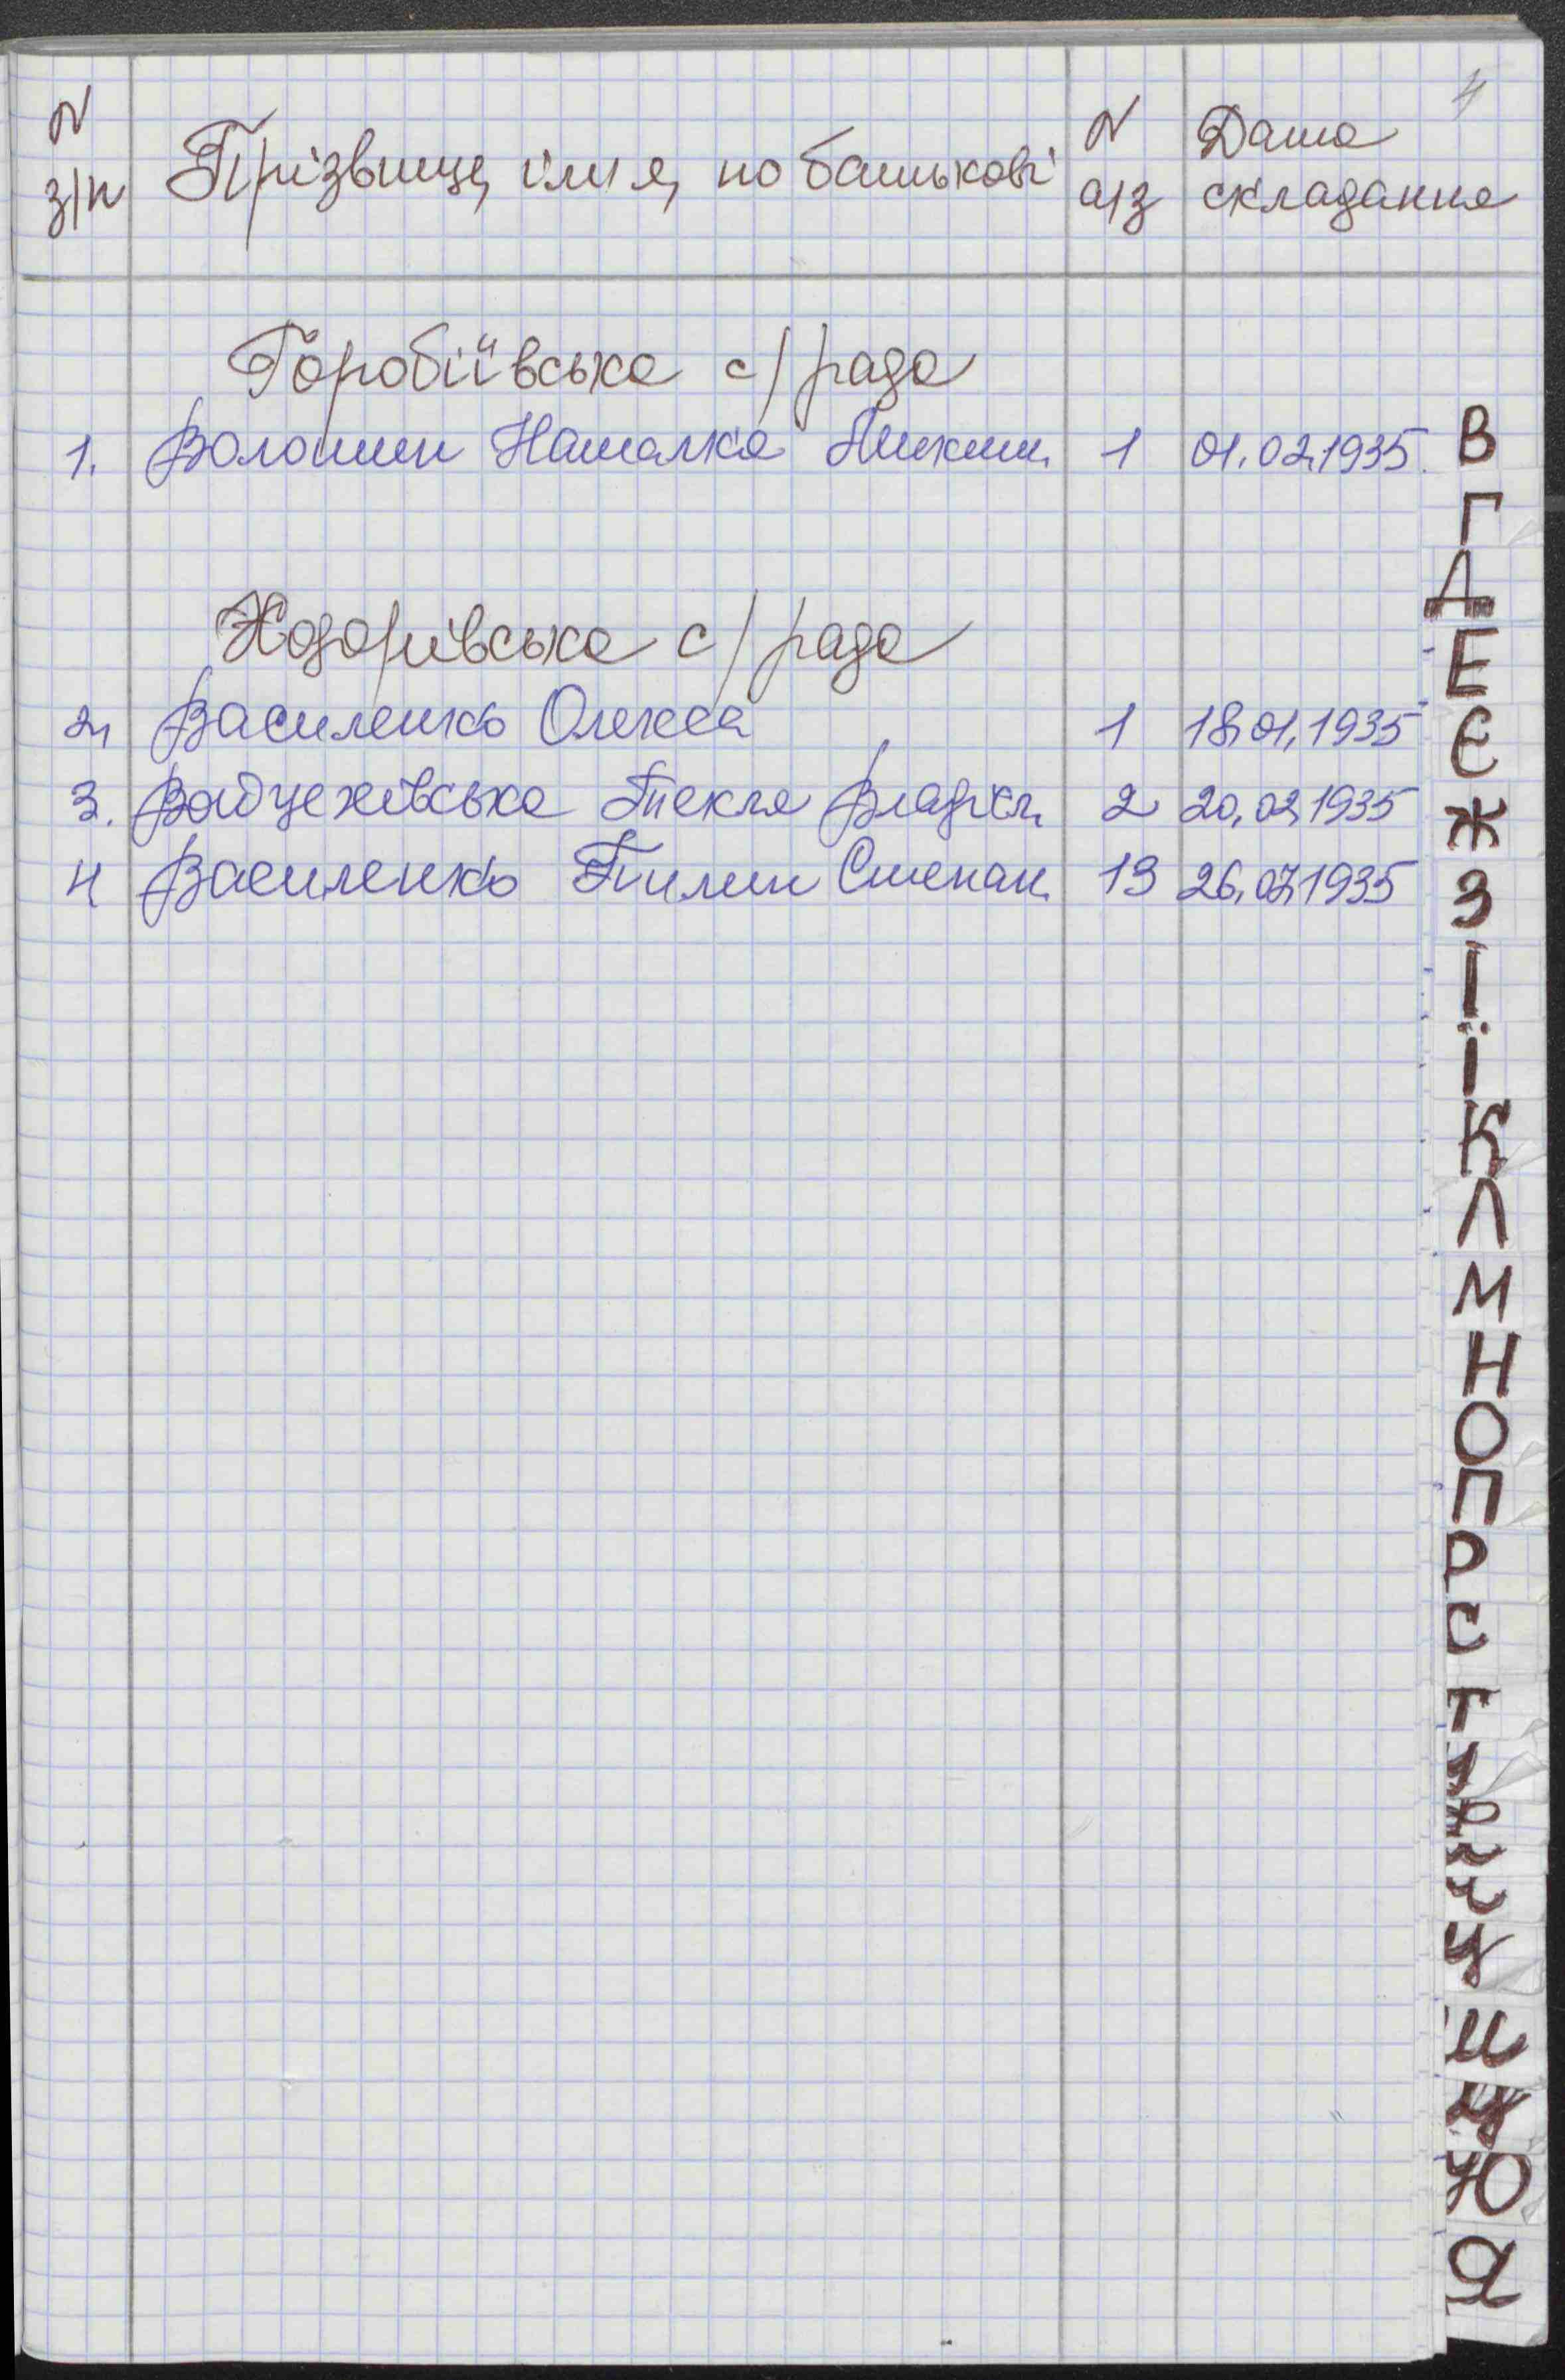 4
N з/п Прізвище, ім'я, по батькові N а/з Дата складання
Горобіївська с/рада
1. Волошин Наталка Микит. 1 01.02.1935.
Ходорівська с/рада
2. Василенко Олекса 1 18.01.1935
3. Войцехівська Текля 2 20.02.1935
4 Василенко Пилип Степан. 13 26.07.1935
В
Г
Д
Е
Є
Ж
З
І
Ї
К
Л
М
Н
О
П
Р
С
Т
У
Ч
Ш
Щ
Ю
Я